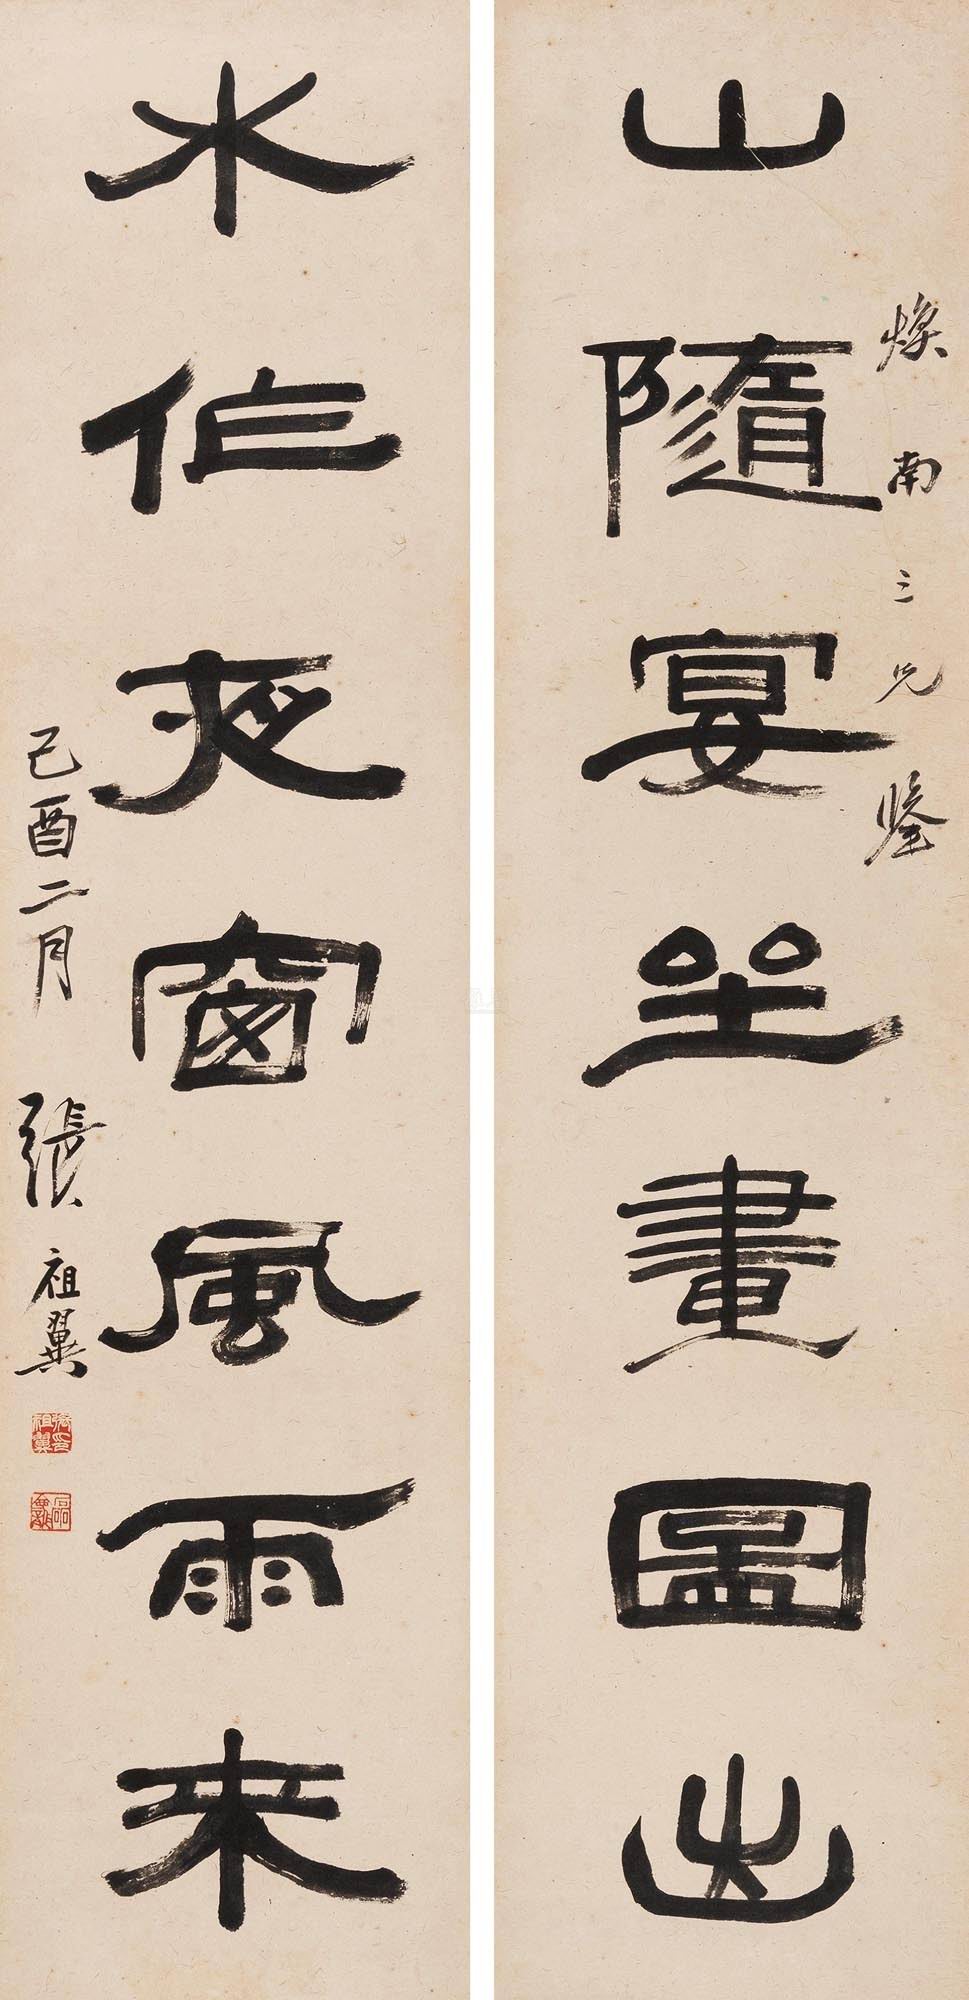 煥南三兄鑒
山隨宴坐畫圖出
水作夜窗風雨來
己酉二月張祖翼
張祖翼印
磊盦